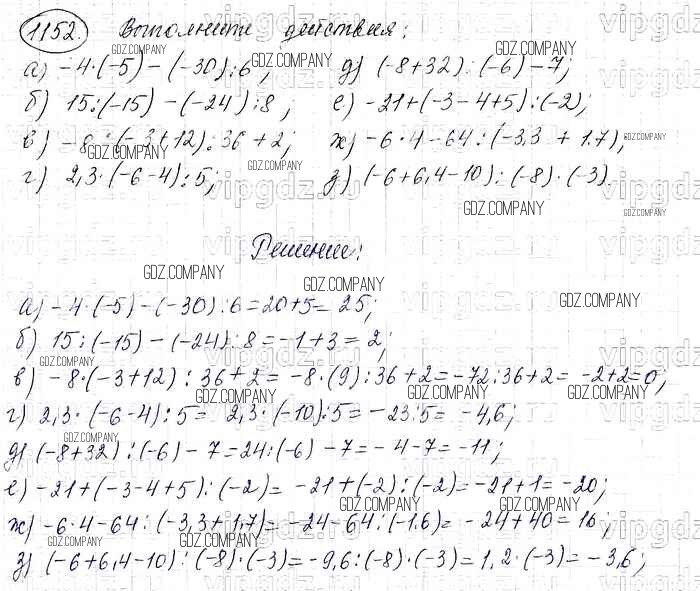 1152. Выполните действия:
а) -4·(-5) - (-30):6; д) (-8+32):(-6)-7;
б) 15:(-15) - (-24):8; е) -21+(-3-4+5):(-2);
в) -8·(-3+12):36+2; ж) -6·4-64:(-3,3+1.7);
г) 2,3·(-6-4):5; з) (-6+6,4-10):(-8)·(-3).
Решение:
а) -4·(-5) - (-30):6=20+5= 25;
б) 15:(-15) - (-24):8=-1+3= 2;
в) -8·(-3+12):36+2= -8·(9):36+2=-72:36+2= -2+2=0;
г) 2,3·(-6-4):5= 2,3·(-10):5= -23:5= -4,6;
д) (-8+32):(-6)-7=24:(-6)-7=-4-7=-11;
е) -21+(-3-4+5):(-2)= -21+(-2):(-2)=-21+1=-20;
ж) -6·4-64:(-3,3+1,7)= -24-64:(-1.6)= -24+40=16;
з) (-6+6,4-10):(-8)·(-3)=-9,6:(-8)·(-3)=1,2·(-3)=-3,6;